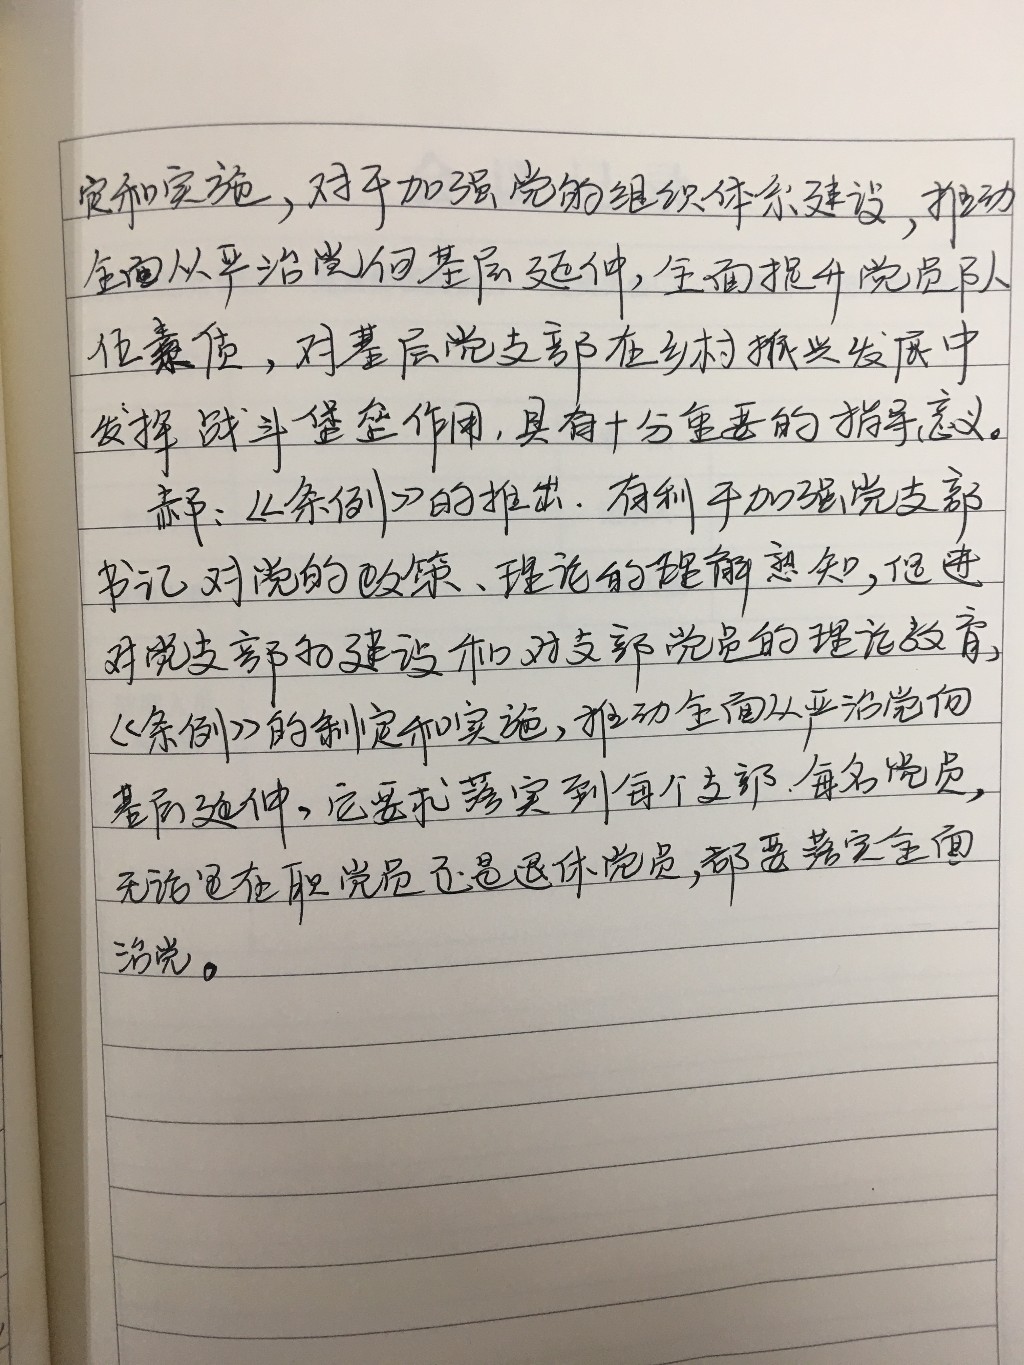 定和实施，对于加强党的组织体系建设，推动
全面从严治党向基层延伸，全面提升党员队
伍素质，对基层党支部在乡村振兴发展中
发挥战斗堡垒作用，具有十分重要的指导意义。
郝：《条例》的推出．有利于加强党支部
书记对党的政策、理论的理解熟知，促进
对党支部的建设和对支部党员的理论教育，
《条例》的制定和实施，推动全面从严治党向
基层延伸，它要求落实到每个支部．每名党员，
无论是在职党员还是退休党员，都要落实全面
治党。